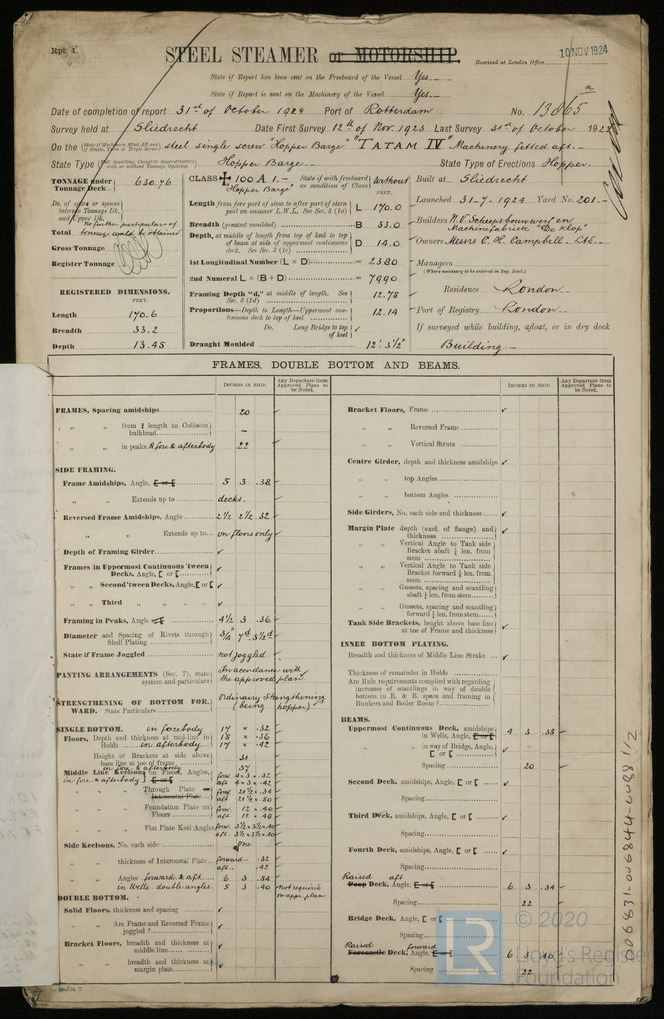 Rpt. 4.
STEEL STEAMER or MOTORSHIP.
Received at London Office
10 NOV 1924
State if Report has been sent on the Freeboard of the Vessel Yes.
State if Report is sent on the Machinery of the Vessel Yes.
Date of completion of report 31st of October 1924 Port of Rotterdam No. 13865
Survey held at Sliedrecht Date First Survey 12th of Nov 1923 Last Survey 31st of October 1924
On the steel single screw "Hopper Barge" "TATAM IV" Machinery fitted aft.
State Type Hopper Barge State Type of Erections Hopper.
TONNAGE under Tonnage Deck 630.76
CLASS 100 A 1. State if with freeboard as condition of Class without
'Hopper Barge'
FEET.
Built at Sliedrecht
Launched 31-7-1924 Yard No. 201.
Length from fore part of stem to after part of stern post on summer L.W.L. See Sec. 3 (1a) L 170.0
Builders N.V. Scheepsbouwwerf en Machinefabriek "De Klop"
Breadth (greatest moulded) B 33.0
Total no further particulars of tonnage could be obtained
Depth, at middle of length from top of keel to top of beam at side of uppermost continuous deck. See Sec. 3 (1c) D 14.0
Owners Messrs C. H. Campbell Ltd.
Gross Tonnage
1st Longitudinal Number (L × D) = 2380
Managers
(Where necessary to be entered in Reg. Book.)
Register Tonnage
2nd Numeral L × (B + D) = 7990
Residence London.
REGISTERED DIMENSIONS.
FEET.
Framing Depth "d," at middle of length. See Sec. 3 (1d) 12.75
Port of Registry London.
Length 170.6
Proportions—Depth to Length—Uppermost continuous deck to top of keel 12.14
Do. Long Bridge to top of keel
If surveyed while building, afloat, or in dry dock
Breadth 33.2
Depth 13.45
Draught Moulded 12'-3½"
Building
FRAMES, DOUBLE BOTTOM AND BEAMS.
INCHES IN SHIP.
Any Departure from Approved Plans to be Noted.
FRAMES, Spacing amidships 20
" " from ¾ length to Collision bulkhead —
" " in peaks, & fore & afterbody 22
SIDE FRAMING.
Frame Amidships, Angle, 5 3 .38
" " Extends up to decks.
Reversed Frame Amidships, Angle 2½ 2½ .32
" " Extends up to on floors only
Depth of Framing Girder
Frames in Uppermost Continuous 'tween Decks, Angle, [ or [
" " Second 'tween Decks, Angle, [ or [
" " Third " "
Framing in Peaks, Angle 4½ 3 .36
Diameter and Spacing of Rivets through Shell Plating ¾"
State if Frame Joggled not joggled
PANTING ARRANGEMENTS (Sec. 7), state system and particulars In accordance with the approved plan.
STRENGTHENING OF BOTTOM FORWARD. State Particulars Ordinary strengthening (being hopper)
SINGLE BOTTOM. in forebody 17 × .32
Floors, Depth and thickness at mid-line in Holds 15 × .36
in afterbody 17 × .42
Height of Brackets at side above base line at toe of frame
in fore & afterbody 37
Middle Line Keelsons on Floors, Angles, forw 4 × 3 × .32
in fore & afterbody aft 4 × 3 × .42
" " Through Plate forw 21½ × .34
Intercostal Plate aft 21½ × .50
" " Foundation Plate on Floors forw. 12 × .40
aft 12 × .48
" " Flat Plate Keel Angles forw. 3½ × 3½ × .40
aft. 3½ × 3½ × .50
Side Keelsons, No. each side one
" " thickness of Intercostal Plate forward .32
aft .42
" " Angles forward & aft 6 3 .34
in Wells double angles 5 3 .40 not required on appr. plan
DOUBLE BOTTOM.
Solid Floors, thickness and spacing
" " Are Frame and Reversed Frame joggled?
Bracket Floors, breadth and thickness at middle line
" " breadth and thickness at margin plate
INCHES IN SHIP.
Any Departure from Approved Plans to be Noted.
Bracket Floors, Frame
" " Reversed Frame
" " Vertical Struts
Centre Girder, depth and thickness amidships
" " top Angles
" " bottom Angles
Side Girders, No. each side and thickness
Margin Plate depth (excl. of flange) and thickness
" " Vertical Angle to Tank side Bracket abaft ¼ len. from stem
" " Vertical Angle to Tank side Bracket forward ¼ len. from stem
" " Gussets, spacing and scantling abaft ¼ len. from stem
" " Gussets, spacing and scantling forward ¼ len. from stem
Tank Side Brackets, height above base line at toe of Frame and thickness
INNER BOTTOM PLATING.
Breadth and thickness of Middle Line Strake
Thickness of remainder in Holds
Are Rule requirements complied with regarding increases of scantlings in way of double bottom in E. & B. space and framing in Bunkers and Boiler Room?
BEAMS.
Uppermost Continuous Deck, amidships in Wells, Angle, 4 3 .35
" " in way of Bridge, Angle, [ or [
Spacing 20
Second Deck, amidships, Angle, [ or [
Spacing
Third Deck, amidships, Angle, [ or [
Spacing
Fourth Deck, amidships, Angle, [ or [
Spacing
Raised aft
Poop Deck, Angle, [ or [ 6 3 .34
Spacing 22
Bridge Deck, Angle, [ or [
Spacing
Raised forward
Forecastle Deck, Angle, [ or [ 6 3
Spacing 22
© 2020
Lloyd's Register
Foundation
LR
006831-006844-0088 1/2